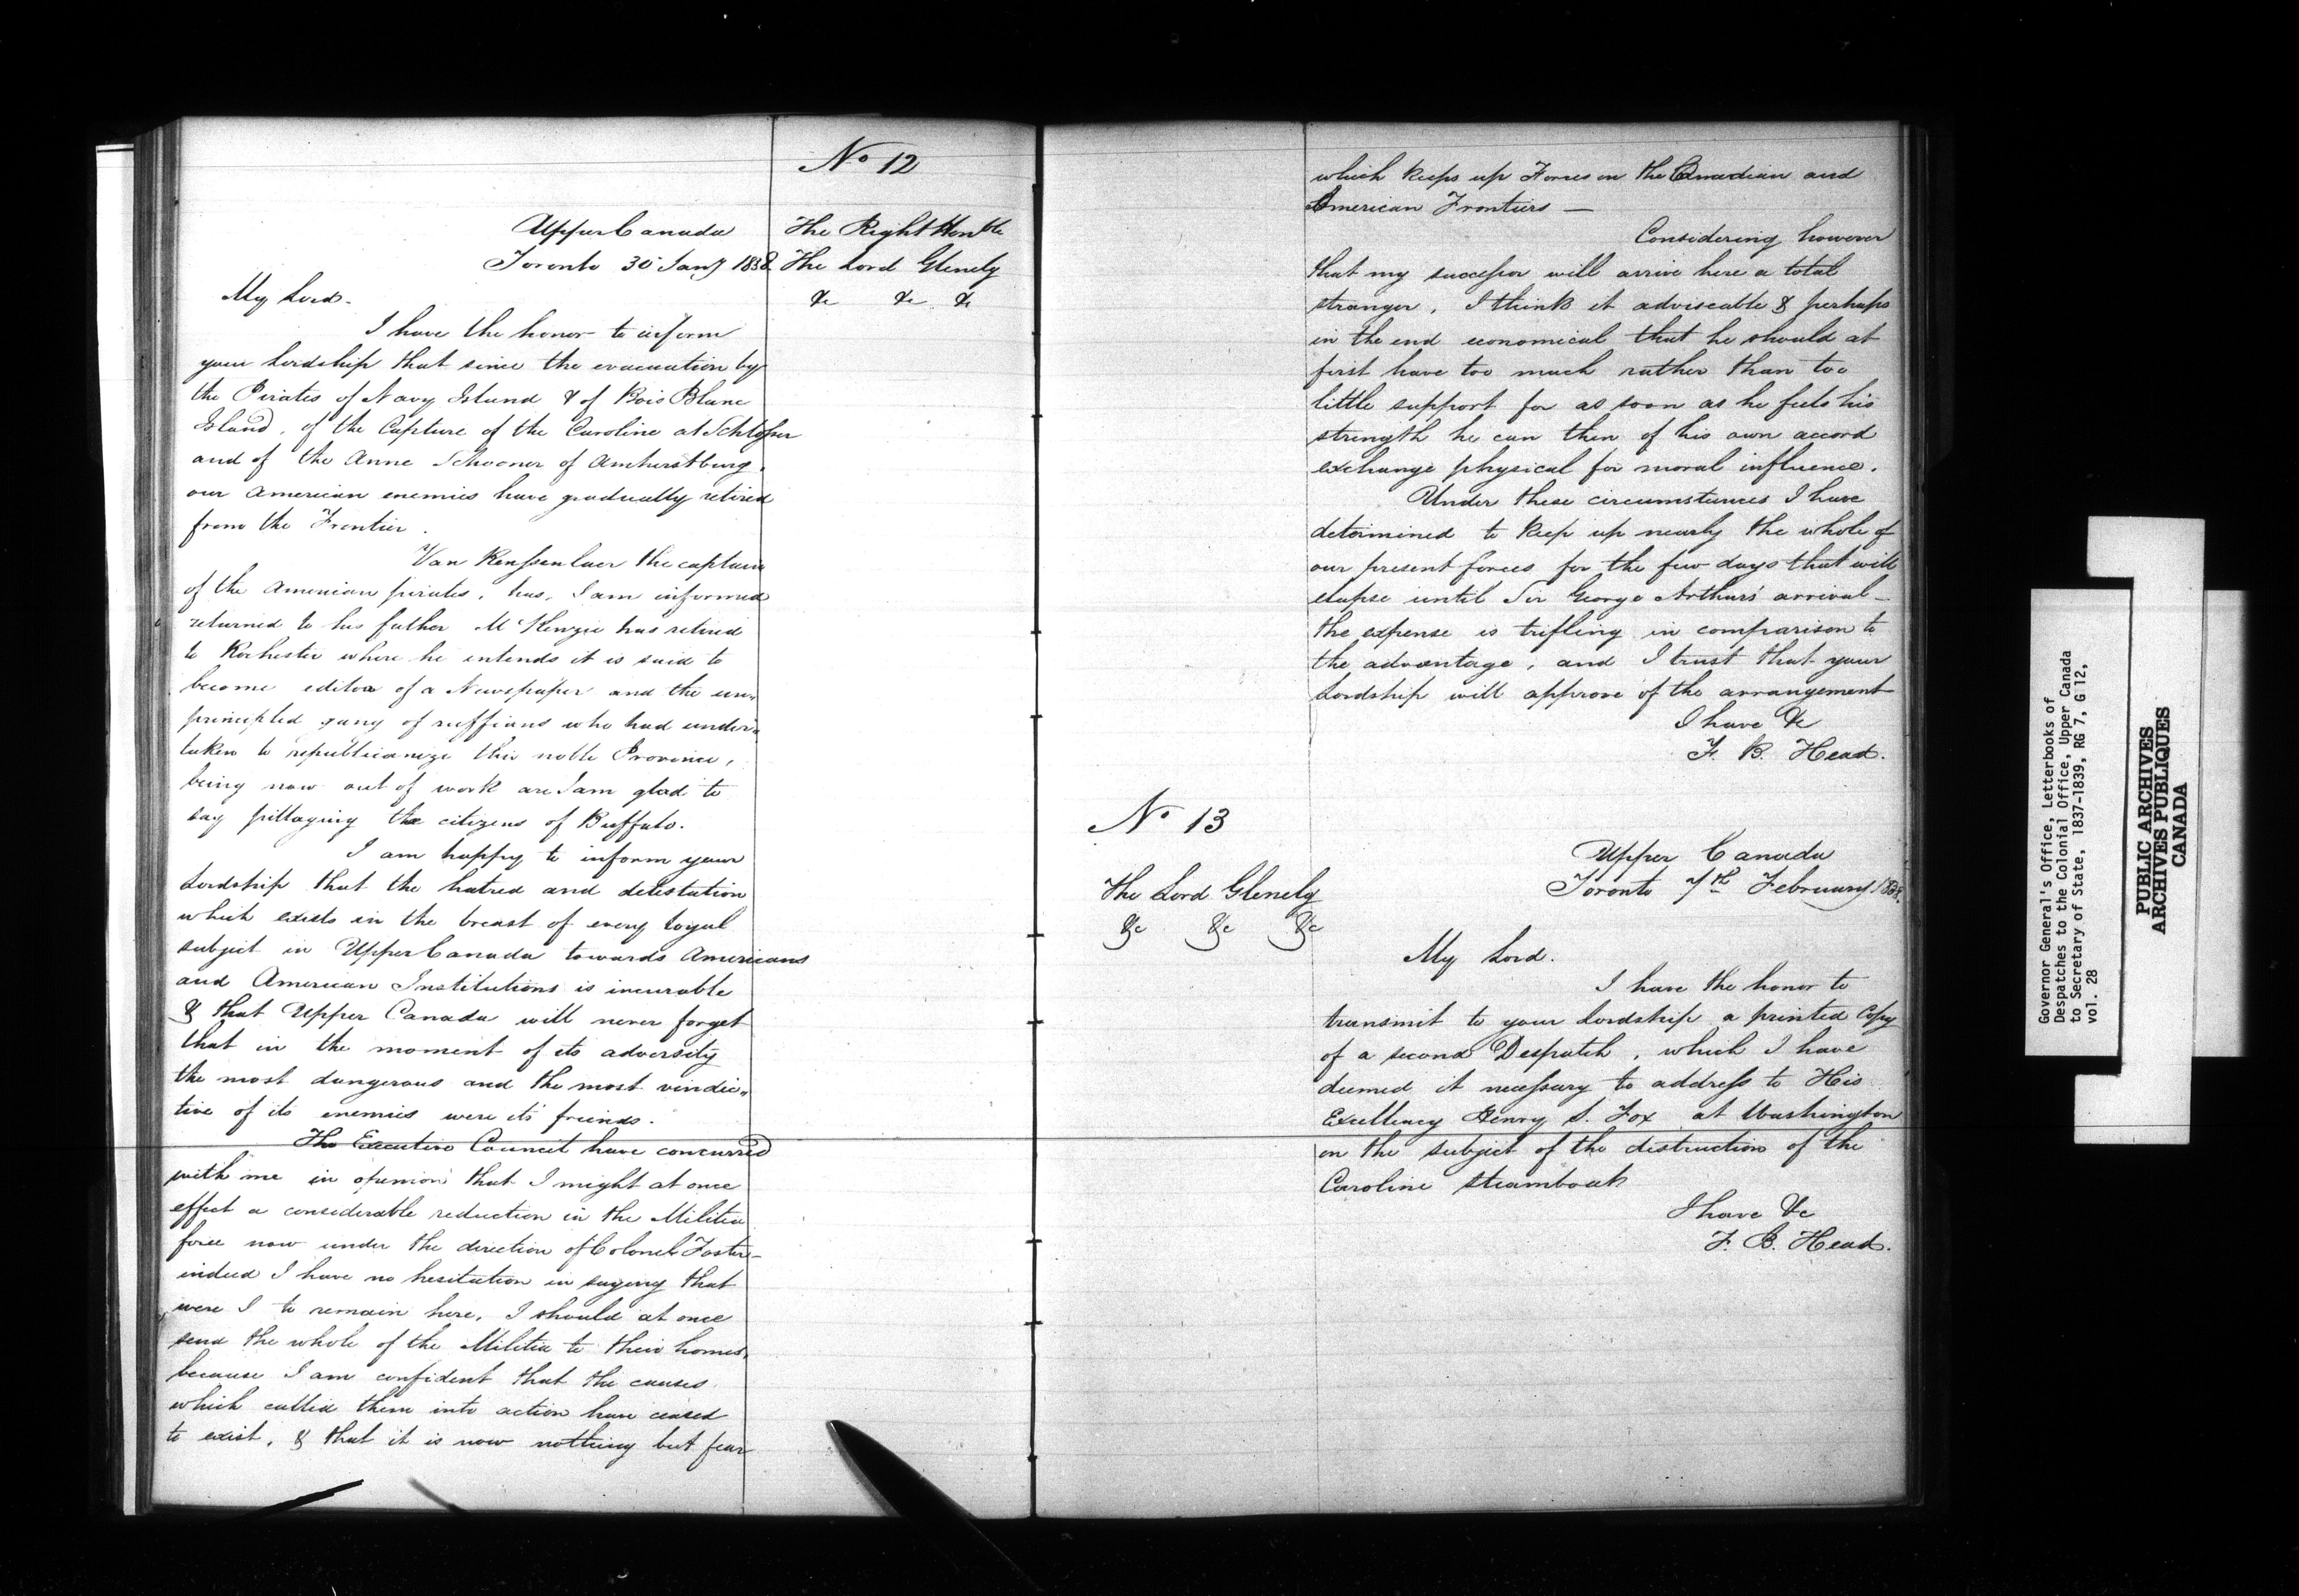 No 12
The Right Honble
The Lord Glenelg
&c &c &c
Upper Canada
Toronto 30 Jany 1838.
My Lord.
I have the honor to inform
your Lordship that since the evacuation by
the Pirates of Navy Island & of Bois Blanc
Island, of the Capture of the Caroline at Schlosser
and of the Anne Schooner of Amherstburg,
our American enemies have gradually retired
from the Frontier.
Van Rensselaer the captain
of the American pirates, has, I am informed
returned to his father McKenzie has retired
to Rochester where he intends it is said to
become editor of a Newspaper and the un-
principled gang of ruffians who had under-
taken to republicanize this noble Province,
being now out of work are I am glad to
say pillaging the citizens of Buffalo.
I am happy to inform your
Lordship that the hatred and detestation
which exists in the breast of every loyal
subject in Upper Canada towards Americans
and American Institutions is incurable
& that Upper Canada will never forget
that in the moment of its adversity
the most dangerous and the most vindic-
tive of its enemies were its friends.
The Executive Council have concurred
with me in opinion that I might at once
effect a considerable reduction in the Militia
force now under the direction of Colonel Foster-
indeed I have no hesitation in saying that
were I to remain here, I should at once
send the whole of the Militia to their homes,
because I am confident that the causes
which called them into action have ceased
to exist, & that it is now nothing but fear
which keeps up Forces on the Canadian and
American Frontiers —
Considering however
that my successor will arrive here a total
stranger, I think it adviseable & perhaps
in the end economical that he should at
first have too much rather than too
little support for as soon as he feels his
strength he can then of his own accord
exchange physical for moral influence.
Under these circumstances I have
determined to keep up nearly the whole of
our present forces for the few days that will
elapse until Sir George Arthur's arrival—
the expense is trifling in comparison to
the advantage, and I trust that your
Lordship will approve of the arrangement
I have &c
F. B. Head.
No 13
The Lord Glenelg
&c &c &c
Upper Canada
Toronto 7th February 1838.
My Lord.
I have the honor to
transmit to your Lordship a printed Copy
of a second Despatch, which I have
deemed it necessary to address to His
Excellency Henry S. Fox at Washington
on the subject of the distruction of the
Caroline steamboat
I have &c
F. B. Head.
Governor General's Office, Letterbooks of
Despatches to the Colonial Office, Upper Canada
to Secretary of State, 1837-1839, RG 7, G 12,
vol. 28
PUBLIC ARCHIVES
ARCHIVES PUBLIQUES
CANADA